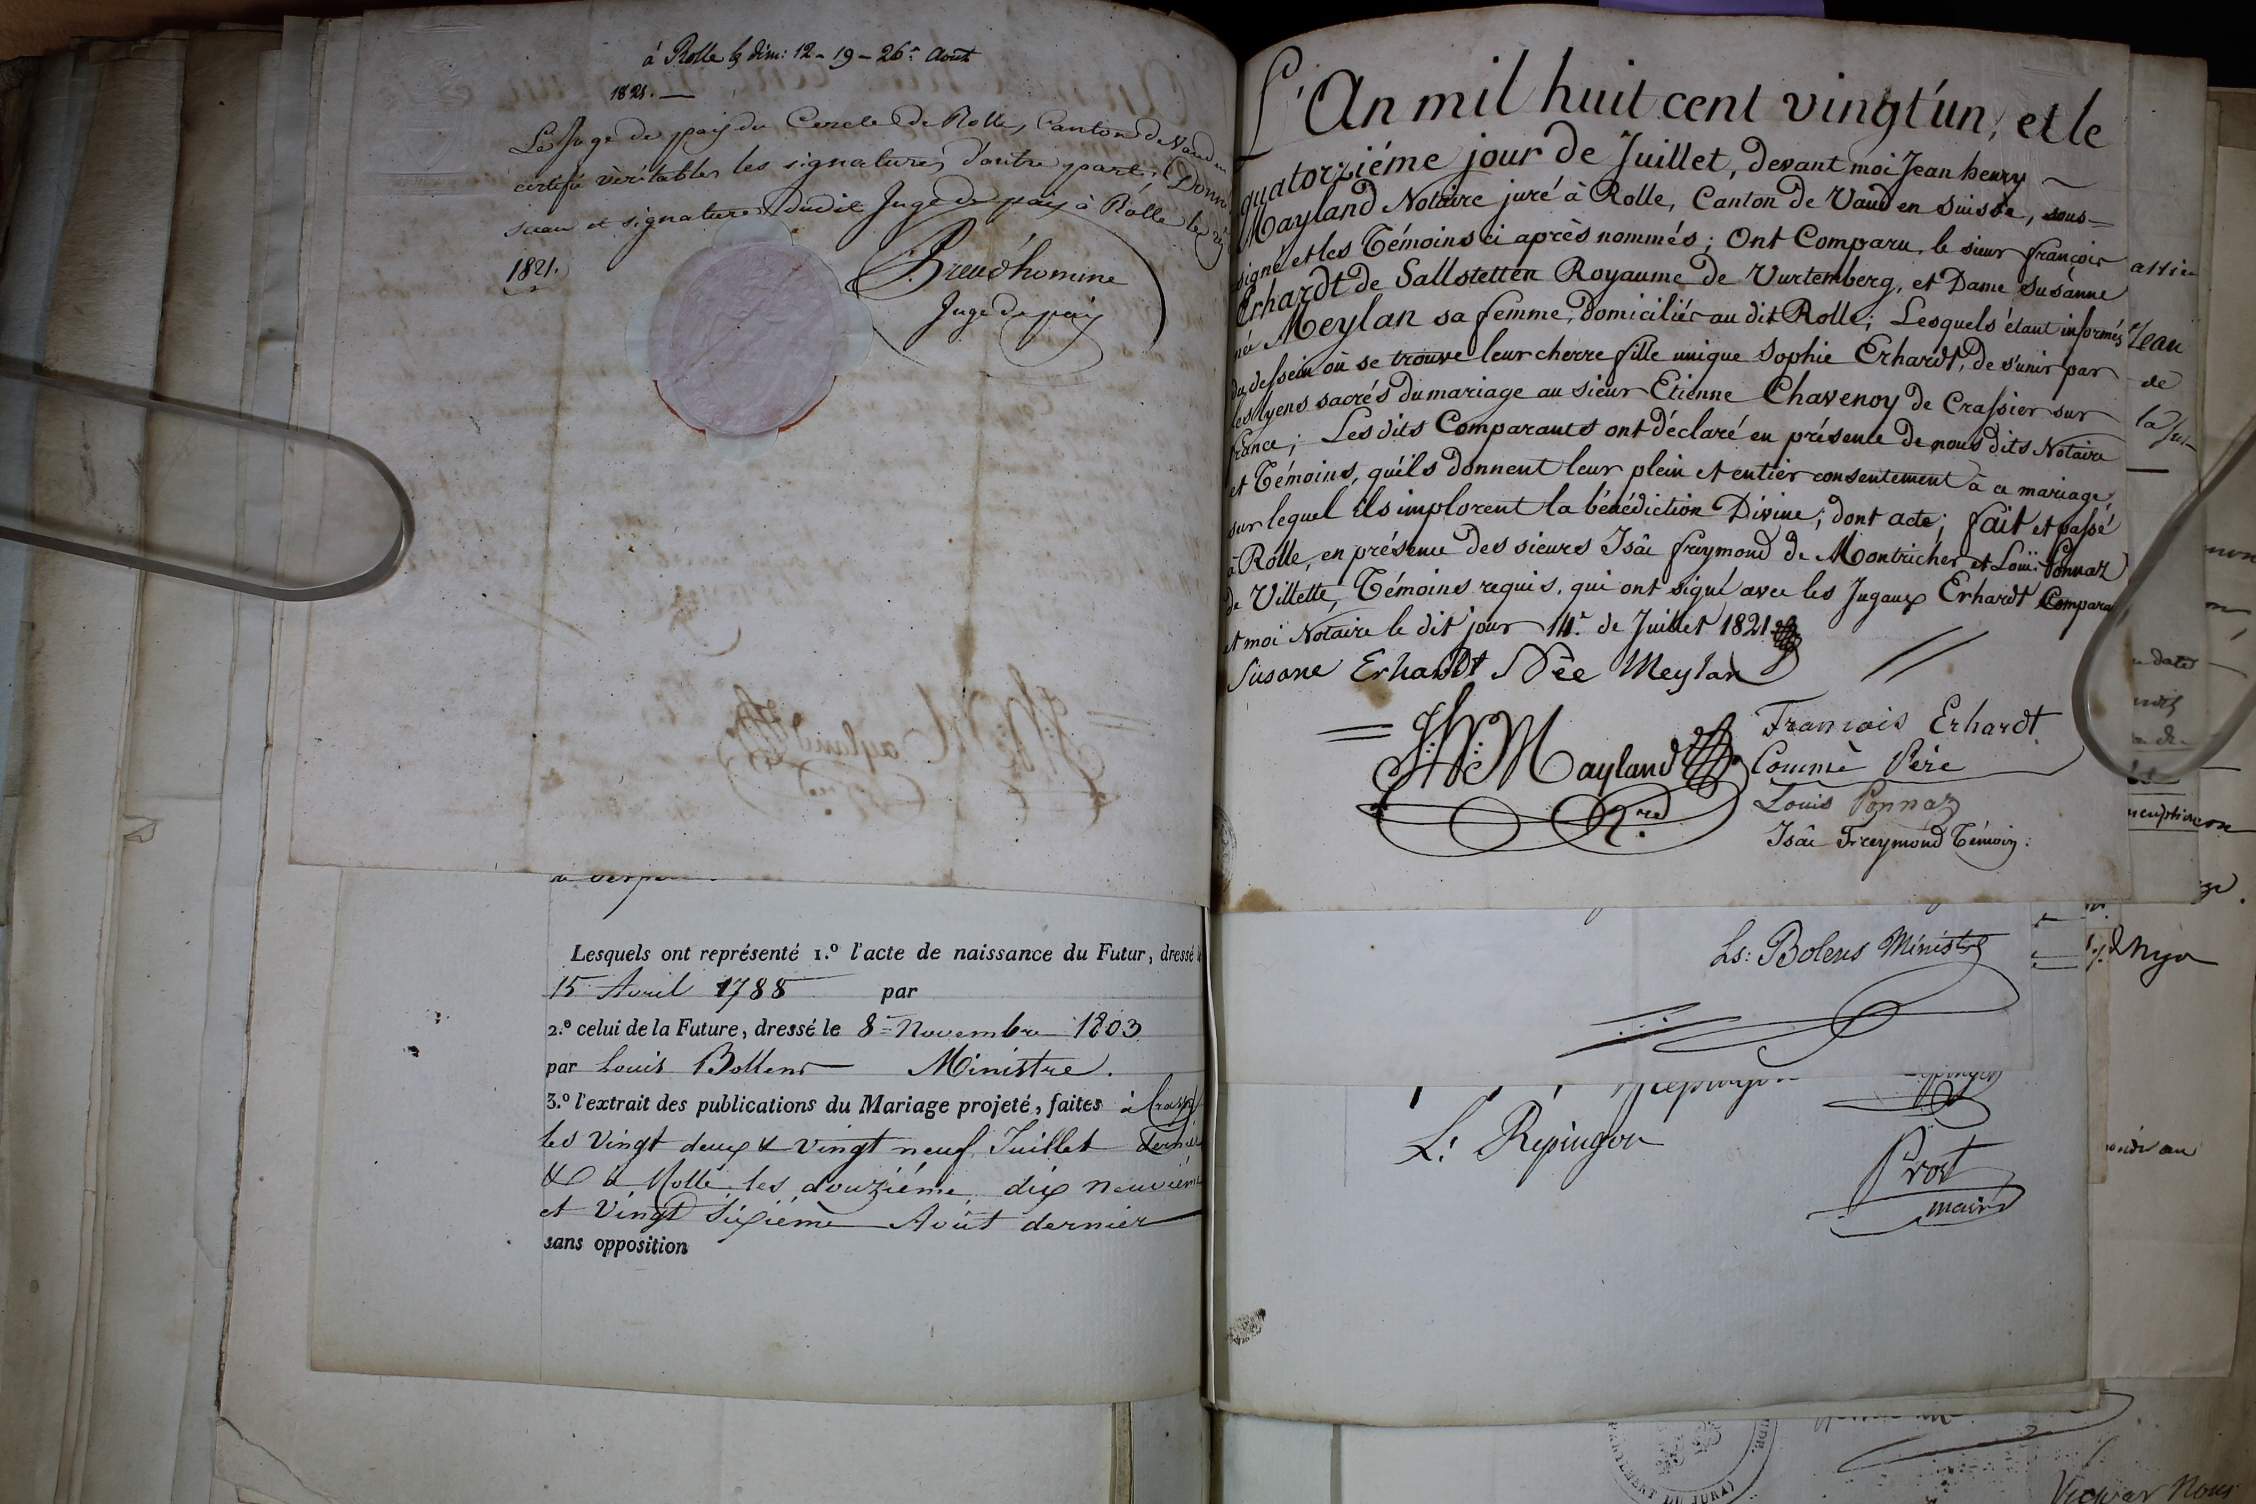 à Rolle les dim: 12 - 19 - 26.e Août
1821. —
Le Juge de paix du Cercle de Rolle, Canton de Vaud
certifie véritables les signatures d'autre part; Donné
sceau et signature dudit Juge de paix à Rolle le
1821.
Preudhomme
Juge de paix
Lesquels ont représenté 1.º l'acte de naissance du Futur, dressé
15 Avril 1788 par
2.º celui de la Future, dressé le 8= Novembre 1803
par Louis Bollens Ministre.
3.º l'extrait des publications du Mariage projeté, faites à
les vingt deux & vingt neuf Juillet dernier
& à Rolle les douzième, dix neuvième
et vingt sixième Août dernier
sans opposition
L'An mil huit cent vingt'un, et le
quatorziéme jour de Juillet, devant moi Jean henry
Mayland Notaire juré à Rolle, Canton de Vaud en Suisse, sous=
signé et les Témoins ci après nommés; Ont Comparu, le sieur françois
Erhardt de Sallstetten Royaume de Vurtemberg, et Dame Susanne
née Meylan sa femme, domiciliés au dit Rolle; Lesquels étant informés
du dessein où se trouve leur cherre fille unique Sophie Erhardt, de s'unir par
les lyens sacrés du mariage au sieur Etienne Chavenoy de Crassier sur
france; Les dits Comparants ont déclaré en présence de nous dits Notaire
et Témoins, qu'ils donnent leur plein et entier consentement à ce mariage,
sur lequel ils implorent la bénédiction Divine; dont acte; fait et passé
à Rolle, en présence des sieurs Isâc freymond de Montricher et Louis Ponnaz
de Villette, Témoins requis, qui ont signé avec les Jugaux Erhardt Compara
et moi Notaire le dit jour 14.e de Juillet 1821
Susane Erhardt Née Meylan
J: H: Mayland
Nre
Francois Erhardt
Comme Père
Louis Ponnaz
Isâc Freymond Témoin:
Ls: Bolens Ministre
L.s Répingon
Prost
maire
Jean
de